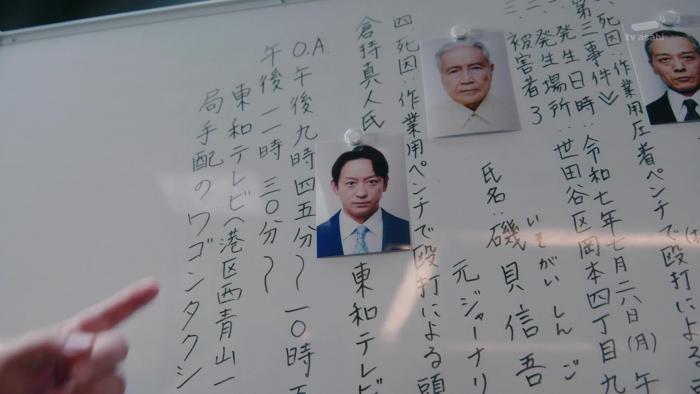 tv asahi
死因：作業用圧着ペンチで殴打による
第三事件
一、発生日時：令和七年七月六日(月)午
二、発生場所：世田谷区岡本四丁目九
三、被害者3
氏名：磯貝信吾
いそがい しんご
元ジャーナリ
四、死因：作業用ペンチで殴打による頭
倉持真人氏
東和テレビ
O.A.午後九時四五分〜一〇時五
午後一一時三〇分〜
東和テレビ(港区西青山一
局手配のワゴンタクシ